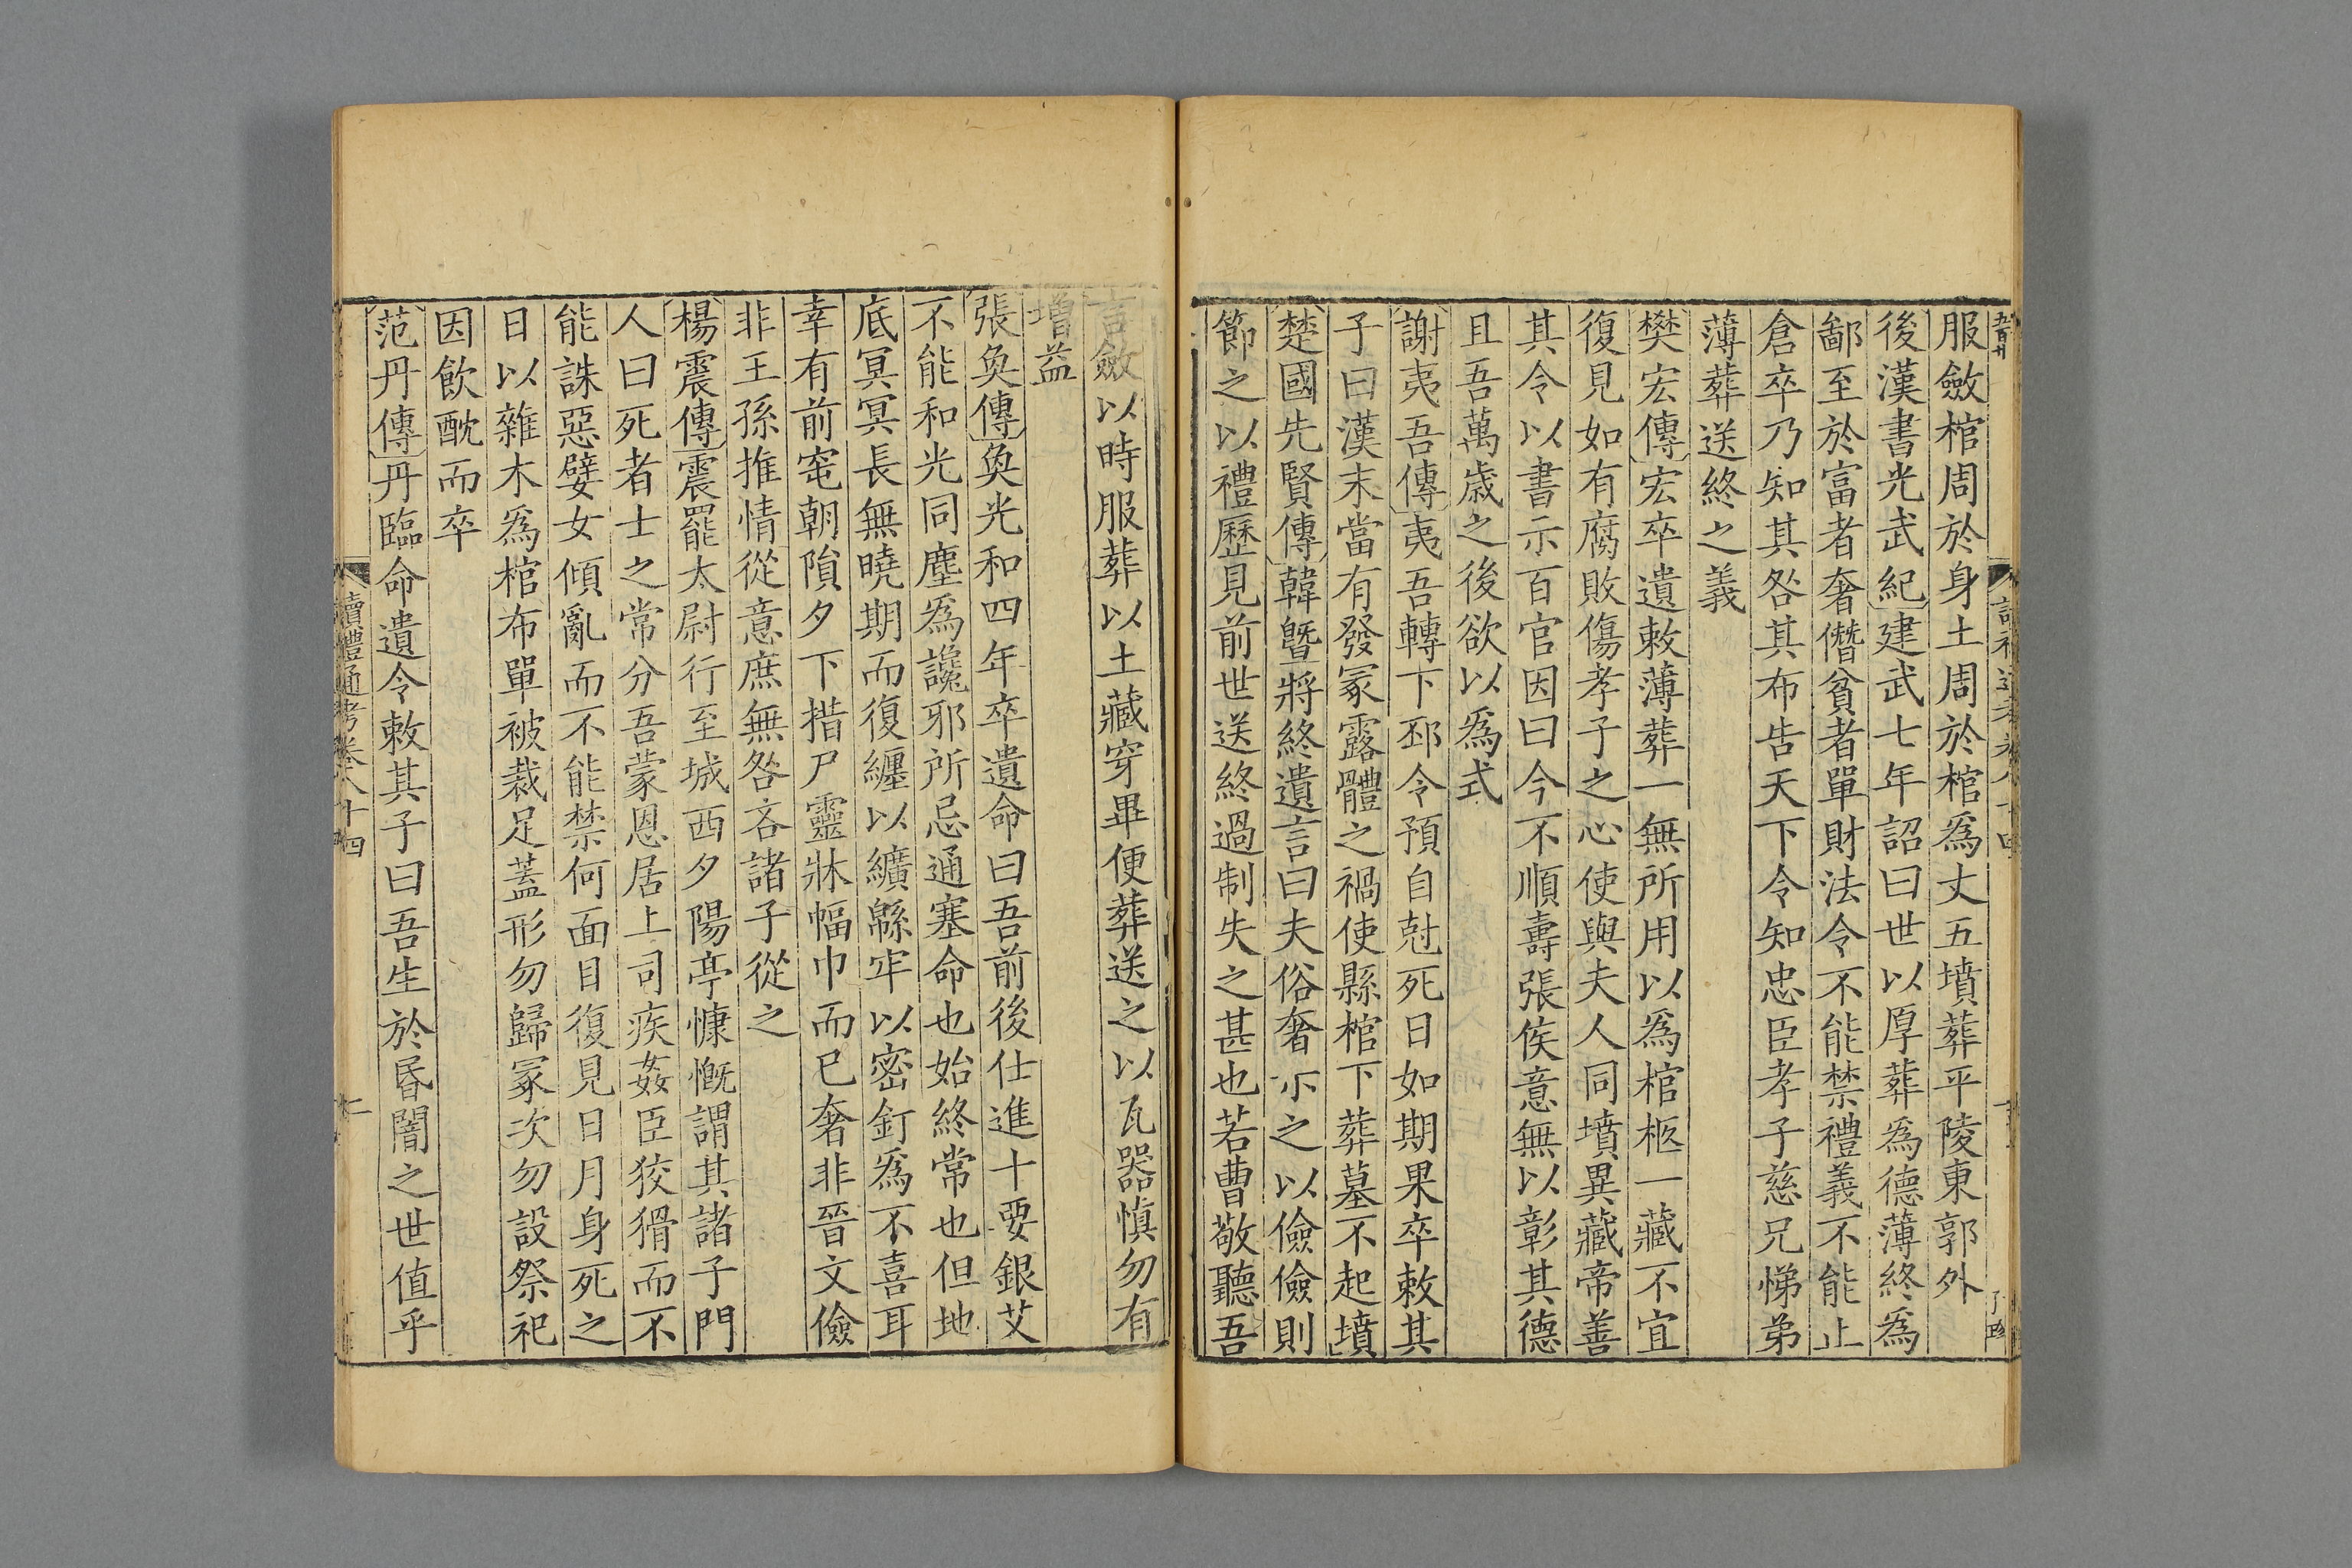 服斂棺周於身土周於棺爲丈五墳葬平陵東郭外
後漢書光武紀建武七年詔曰世以厚葬爲德薄終爲
鄙至於富者奢僭貧者單財法令不能禁禮義不能止
倉卒乃知其咎其布告天下令知忠臣孝子慈兄悌弟
薄葬送終之義
樊宏傳宏卒遺敕薄葬一無所用以爲棺柩一藏不宜
復見如有腐敗傷孝子之心使與夫人同墳異藏帝善
其令以書示百官因曰今不順壽張侯意無以彰其德
且吾萬歲之後欲以爲式
謝夷吾傳夷吾轉下邳令預自尅死日如期果卒敕其
子曰漢末當有發冢露體之禍使縣棺下葬墓不起墳
楚國先賢傳韓曁將終遺言曰夫俗奢示之以儉儉則
節之以禮歷見前世送終過制失之甚也若曹敬聽吾
言斂以時服葬以土藏穿畢便葬送之以瓦器愼勿有
增益
張奐傳奐光和四年卒遺命曰吾前後仕進十要銀艾
不能和光同塵爲讒邪所忌通塞命也始終常也但地
底冥冥長無曉期而復纏以纊緜牢以密釘爲不喜耳
幸有前窀朝隕夕下措尸靈牀幅巾而已奢非晉文儉
非王孫推情從意庶無咎吝諸子從之
楊震傳震罷太尉行至城西夕陽亭慷慨謂其諸子門
人曰死者士之常分吾蒙恩居上司疾姦臣狡猾而不
能誅惡嬖女傾亂而不能禁何面目復見日月身死之
日以雜木爲棺布單被裁足蓋形勿歸冢次勿設祭祀
因飲酖而卒
范丹傳丹臨命遺令敕其子曰吾生於昬闇之世值乎
讀禮通考卷八十四